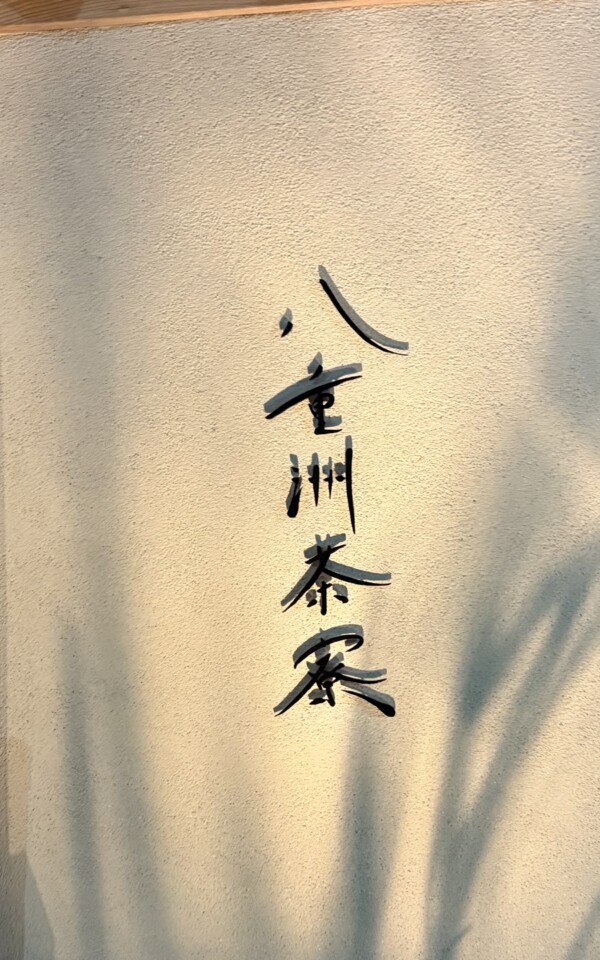 八重洲茶寮